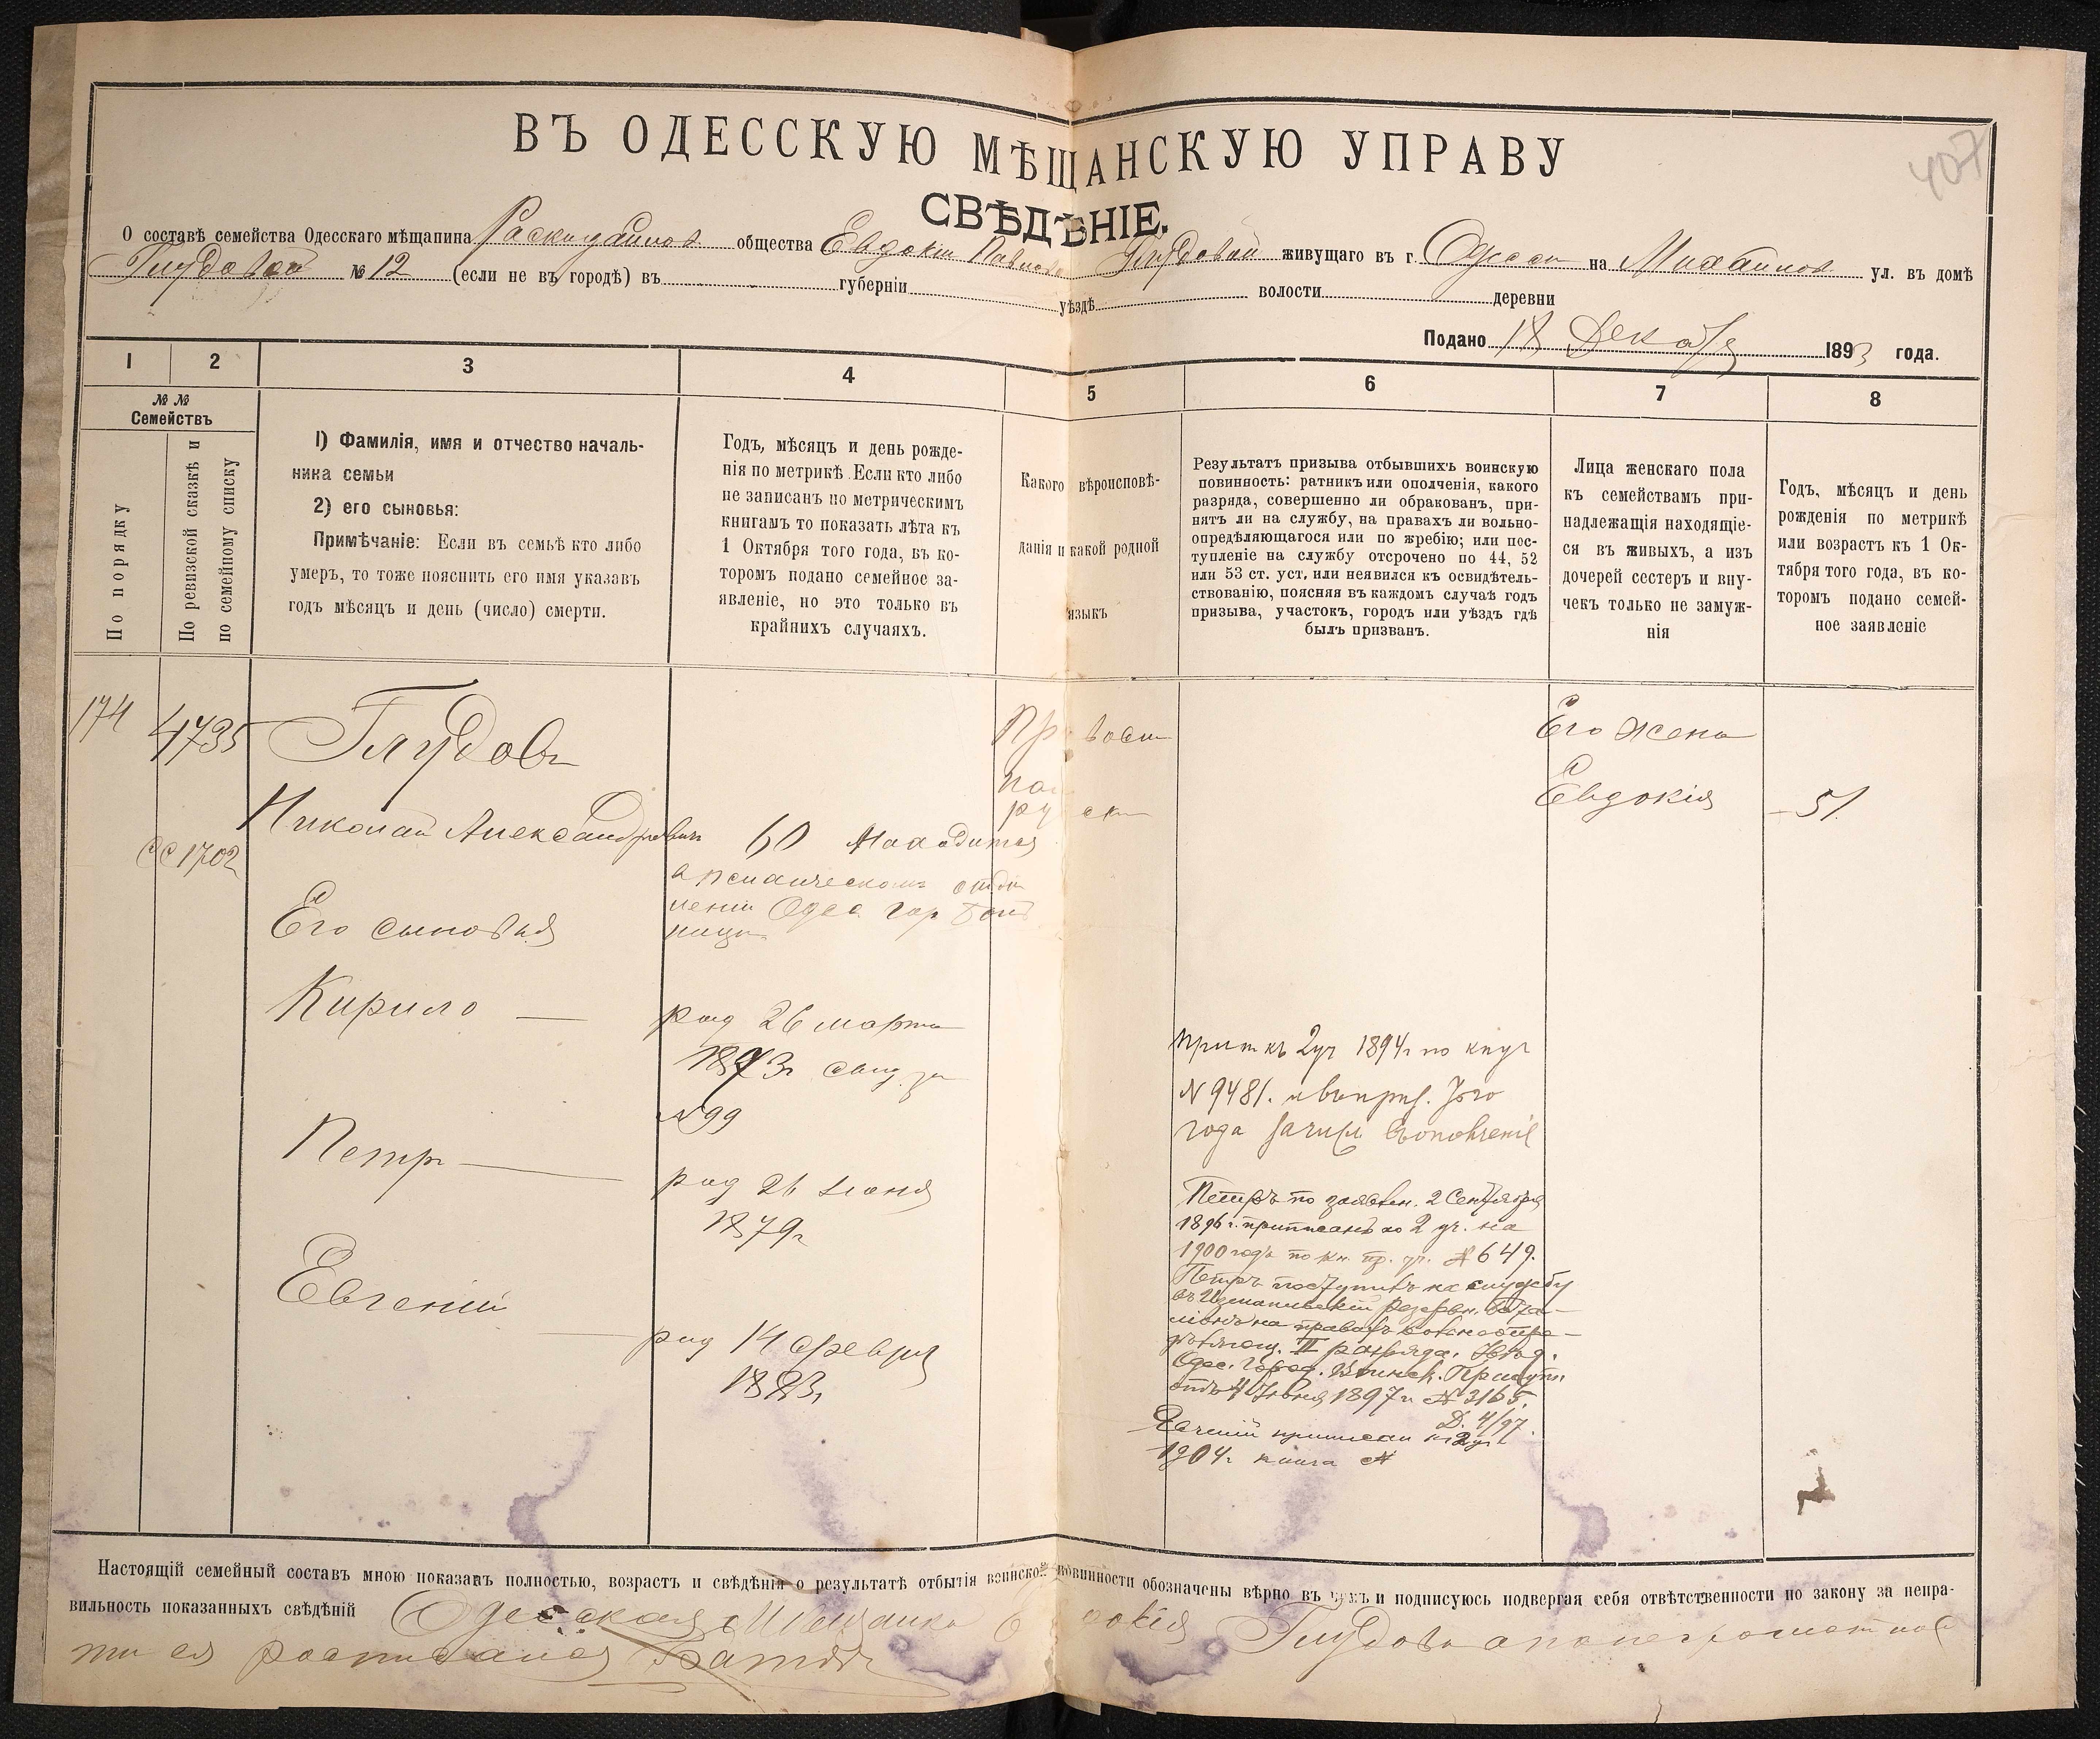 407
ВЪ ОДЕССКУЮ МѢЩАНСКУЮ УПРАВУ
СВѢДѢНІЕ.
О составѣ семейства Одесскаго мѣщанина Раскидайлов общества Евдокіи Павловой Глудовой живущаго въ г. Одессѣ на Михайлов ул. въ домѣ
Глудовой № 12 (если не въ городѣ) въ губерніи уѣздѣ волости деревни
Подано 18 Декабря 1893 года.
1 2 3 4 5 6 7 8
№ №
Семействъ
По порядку
По ревизской сказкѣ и
по семейному списку
1) Фамилія, имя и отчество началь-
ника семьи
2) его сыновья:
Примѣчаніе: Если въ семьѣ кто либо
умеръ, то тоже пояснить его имя указавъ
годъ мѣсяцъ и день (число) смерти.
Годъ, мѣсяцъ и день рожде-
нія по метрикѣ. Если кто либо
не записанъ по метрическимъ
книгамъ то показать лѣта къ
1 Октября того года, въ ко-
торомъ подано семейное за-
явленіе, но это только въ
крайнихъ случаяхъ.
Какого вѣроисповѣ-
данія и какой родной
языкъ
Результатъ призыва отбывшихъ воинскую
повинность: ратникъ или ополченія, какого
разряда, совершенно ли обракованъ, при-
нятъ ли на службу, на правахъ ли вольно-
опредѣляющагося или по жребію; или пос-
тупленіе на службу отсрочено по 44, 52
или 53 ст. уст, или неявился къ освидѣтель-
ствованію, поясняя въ каждомъ случаѣ годъ
призыва, участокъ, городъ или уѣздъ гдѣ
былъ призванъ.
Лица женскаго пола
къ семействамъ при-
надлежащія находящіе-
ся въ живыхъ, а изъ
дочерей сестеръ и вну-
чекъ только не замуж-
нія
Годъ, мѣсяцъ и день
рожденія по метрикѣ
или возрастъ къ 1 Ок-
тября того года, въ ко-
торомъ подано семей-
ное заявленіе
174 4735 Глудовъ
Николай Александровичъ 60 Находится
сс 1702
в психическомъ отдѣ
леніи Одес. гор боль
ницы
Его сыновья
Кирило — род 26 марта
1873г свид. за
№99
Петръ — род 26 Іюня
1879г
Евгеній — род 14 февраля
1883г
Его жена
Евдокія — 51.
припкъ 2уч 1894г по книг
№ 9481. и въ приз. того
года зачисл въ ополченіе
Петръ по заявлен. 2 Сентября
1896 г. приписанъ ко 2 уч. на
1900 годъ по кн. пр. уч. № 649.
Петръ поступилъ на службу
въ Измаильскій резервн. бата-
ліонъ на правахъ вольноопре-
дѣляющ. II разряда. Увѣд.
Одес. Город. Воинск. Присутс.
отъ 4 Іюня 1897г. № 3165.
Д. 4/97.
Евгеній приписан къ 2 уч
1904г книга №
Настоящій семейный составъ мною показанъ полностью, возрастъ и свѣдѣнія о результатѣ отбытія воинской повинности обозначены вѣрно въ чемъ и подписуюсь подвергая себя отвѣтственности по закону за непра-
вильность показанныхъ свѣдѣній Одесская Мѣщанка Евдокія Глудова а по неграмотнос
ти ея росписался